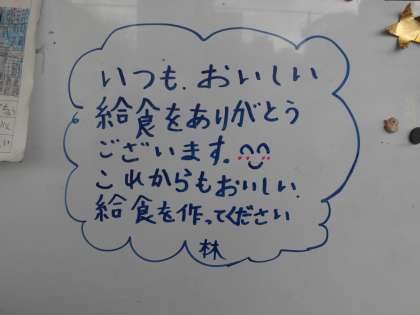 いつも、おいしい
給食をありがとう
ございます。
これからもおいしい
給食を作ってください
林